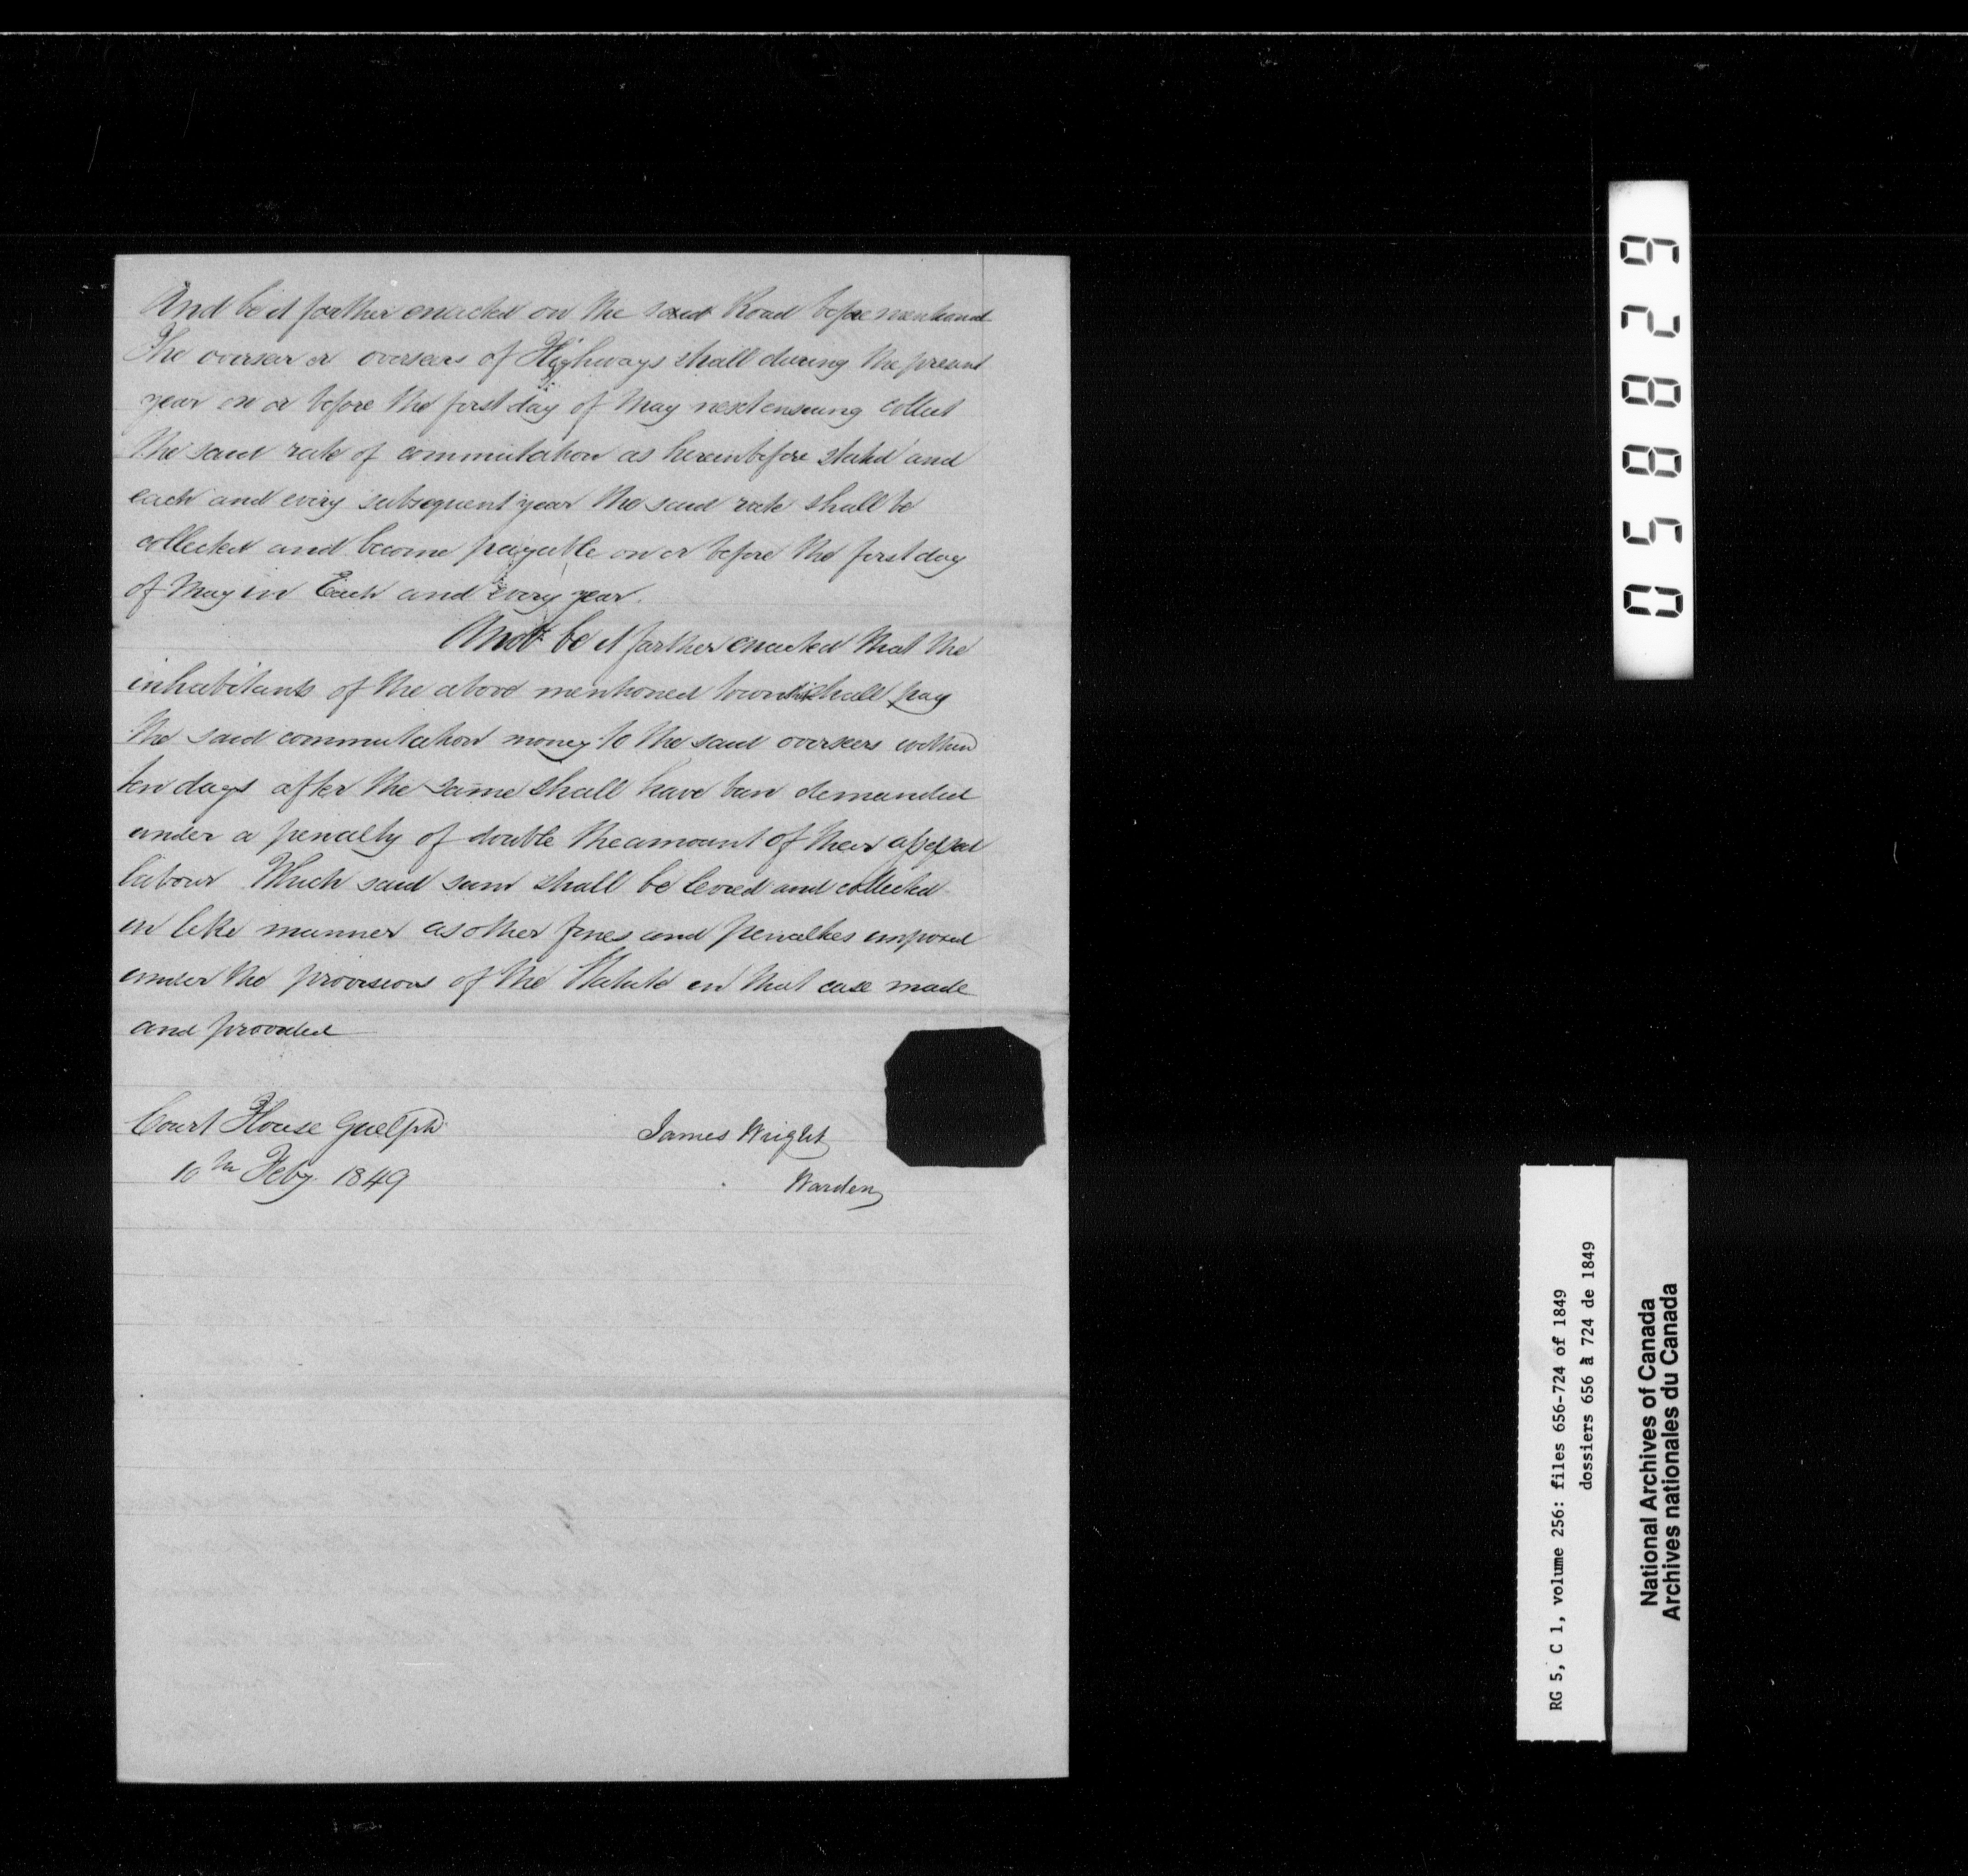 And be it further enacted on the said Road before mentioned
The overseer or overseers of Highways shall during the present
year on or before the first day of May next ensuing collect
the said rate of commutation as hereinbefore stated and
each and every subsequent year the said rate shall be
collected and become payable on or before the first day
of May in Each and Every year.
And be it further enacted that the
inhabitants of the above mentioned township shall pay
the said commutation money to the said overseers within
ten days after the same shall have been demanded
under a penalty of double the amount of their assessed
labour Which said sum shall be levied and collected
in like manner as other fines and penalties imposed
under the provisions of the Statute in that case made
and provided
Court House Guelph
10th Feby. 1849
James Wright
Warden
058829
RG 5, C 1, volume 256: files 656-724 of 1849
dossiers 656 à 724 de 1849
National Archives of Canada
Archives nationales du Canada